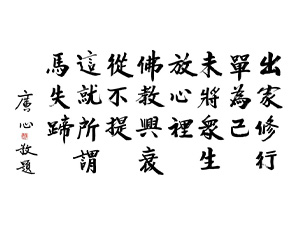 出家修行
單為己
未將眾生
放心裡
佛教興衰
從不提
這就所謂
馬失蹄
廣心敬題